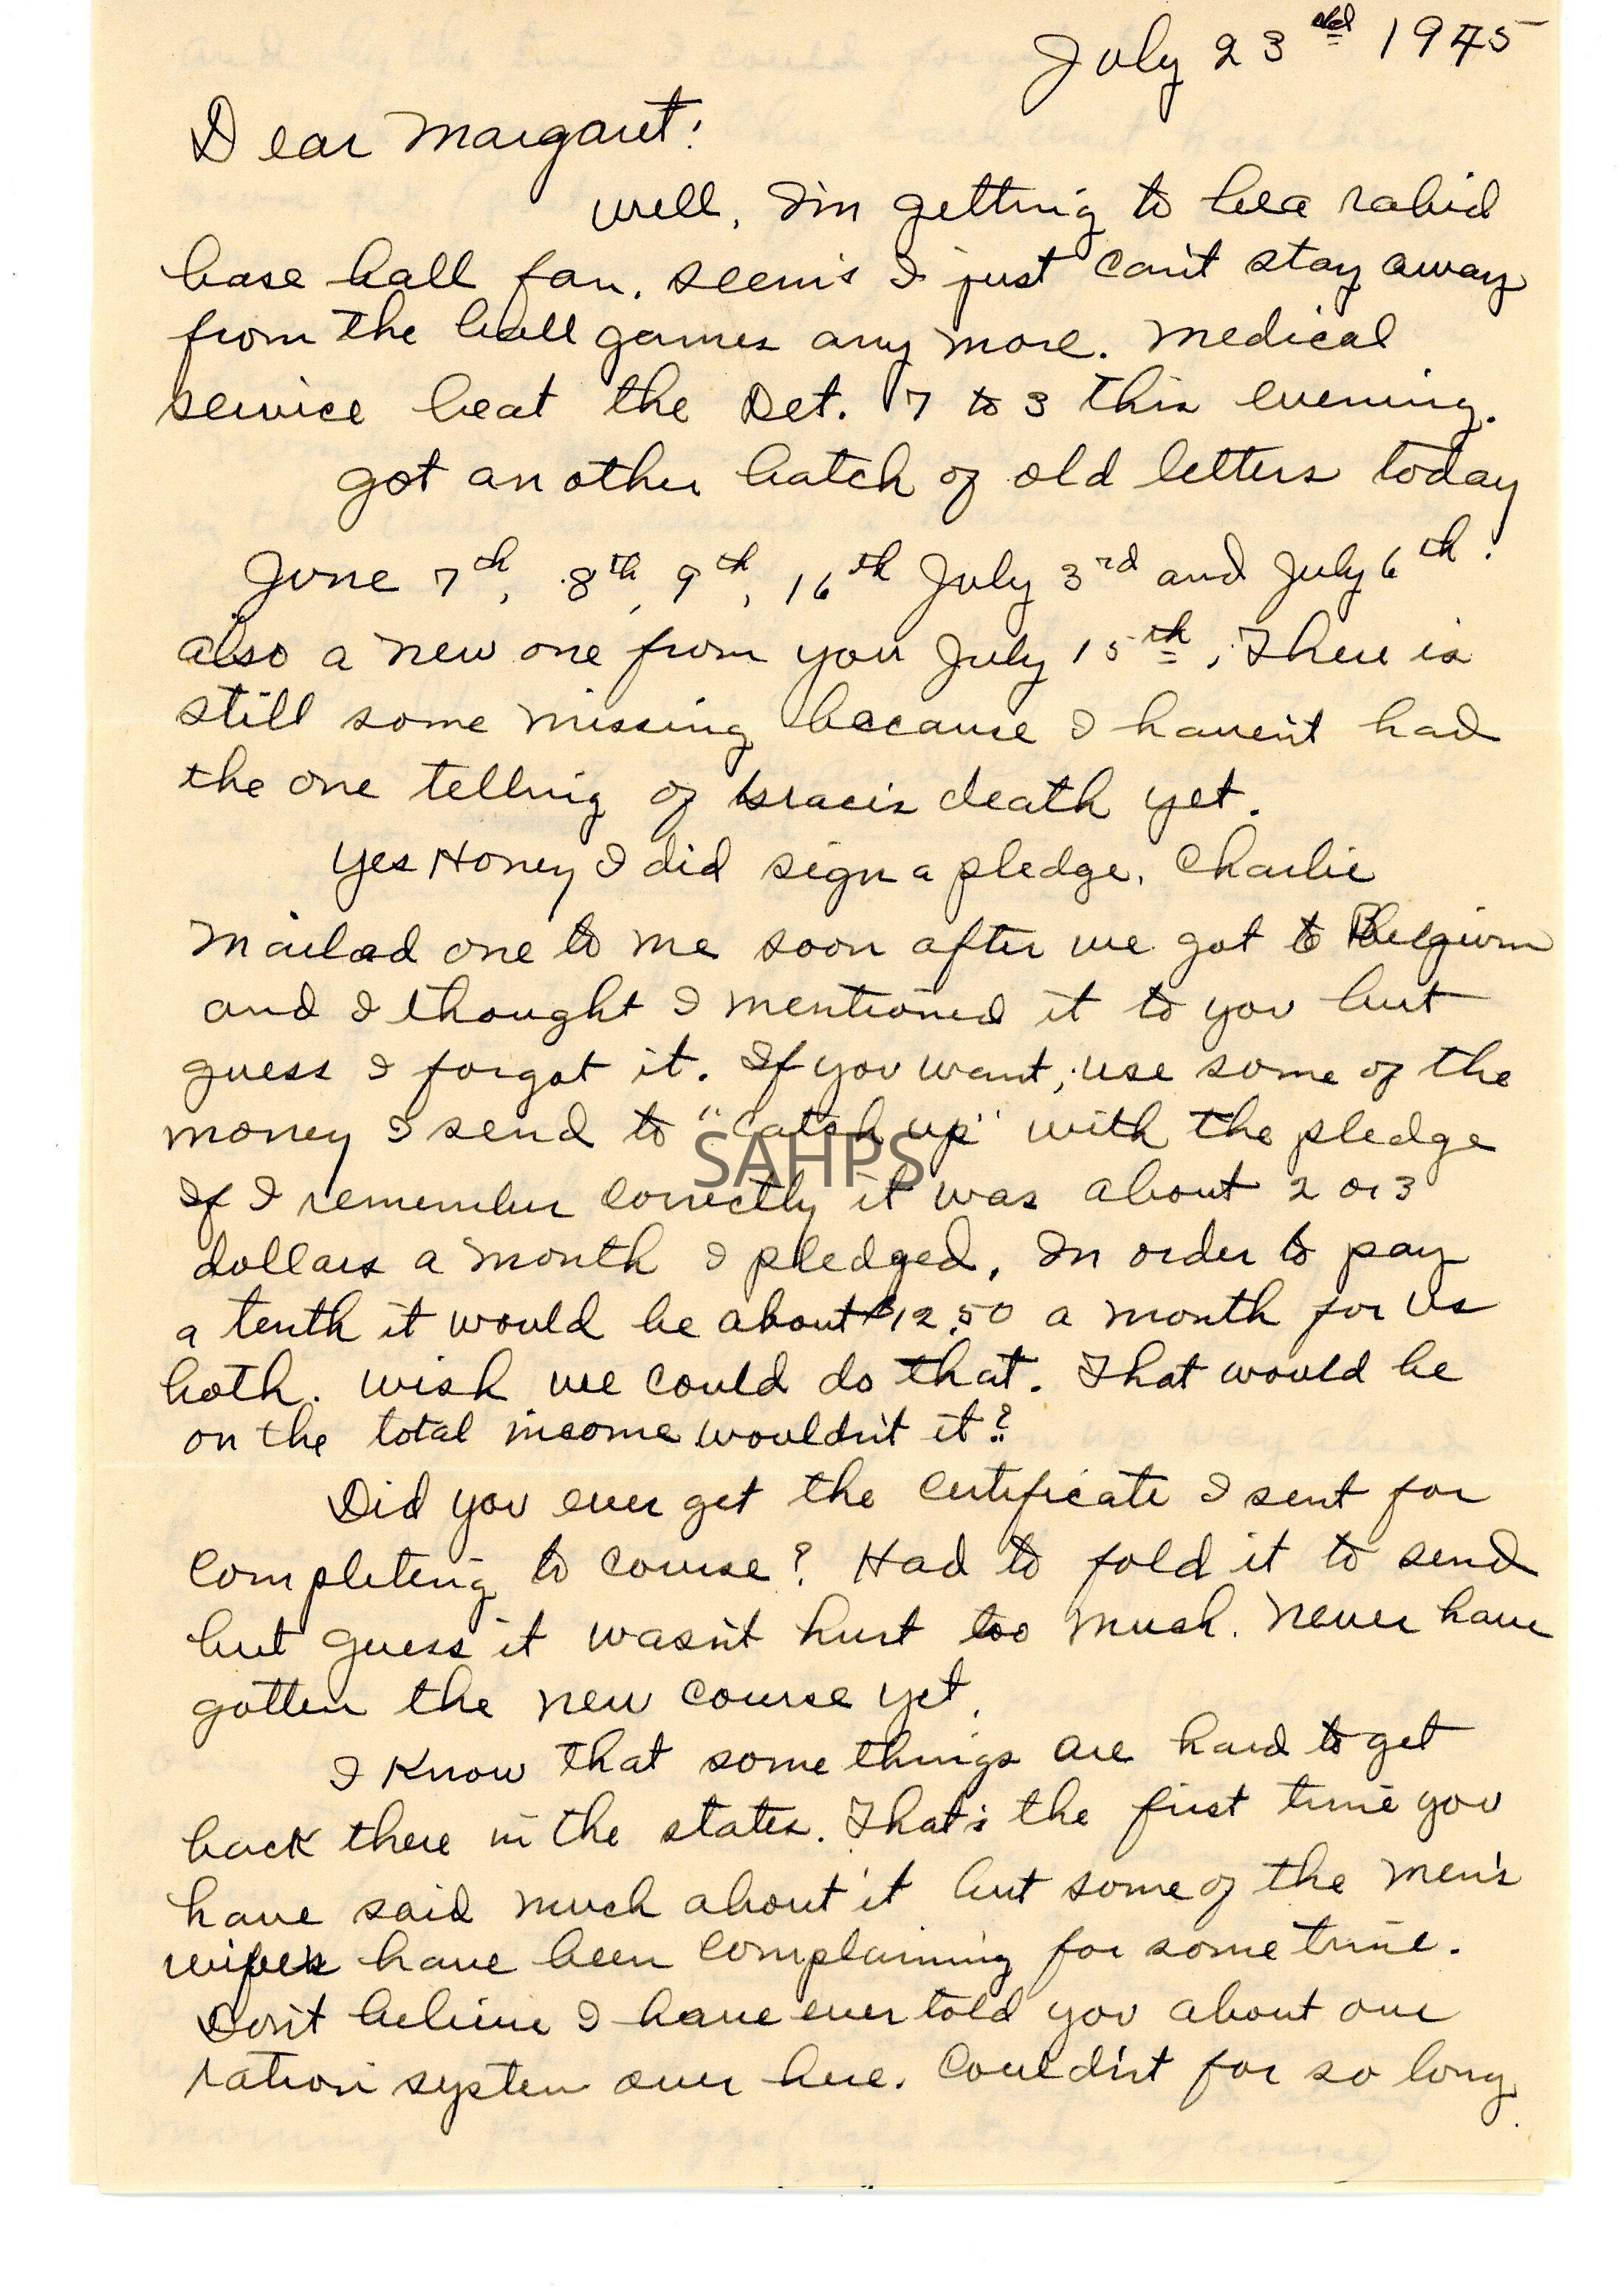 July 23rd 1945
Dear Margaret:
Well, I'm getting to be a rabid
base ball fan. seem's I just can't stay away
from the ball games any more. Medical
service beat the Det. 7 to 3 this evening.
got another batch of old letters today
June 7th, 8th, 9th, 16th July 3rd and July 6th.
also a new one from you July 15th, There is
still some missing because I haven't had
the one telling of death yet.
Yes Honey I did sign a pledge. Charlie
Mailad one to me soon after we got to Belgium
and I thought I mentioned it to you but
guess I forgot it. If you want, use some of the
money I send to "catch up" with the pledge
SAHPS
If I remember correctly it was about 2 or 3
dollars a month I pledged. In order to pay
a tenth it would be about $12.50 a month for us
both. Wish we could do that. That would be
on the total income wouldn't it?
Did you ever get the certificate I sent for
completing to course? Had to fold it to send
but guess it wasn't hurt too much. Never have
gotten the new course yet.
I Know that some things are hard to get
back there in the states. That's the first time you
have said much about it but some of the men's
have been complaining for some time.
Don't believe I have ever told you about our
ration system over here. Couldn't for so long